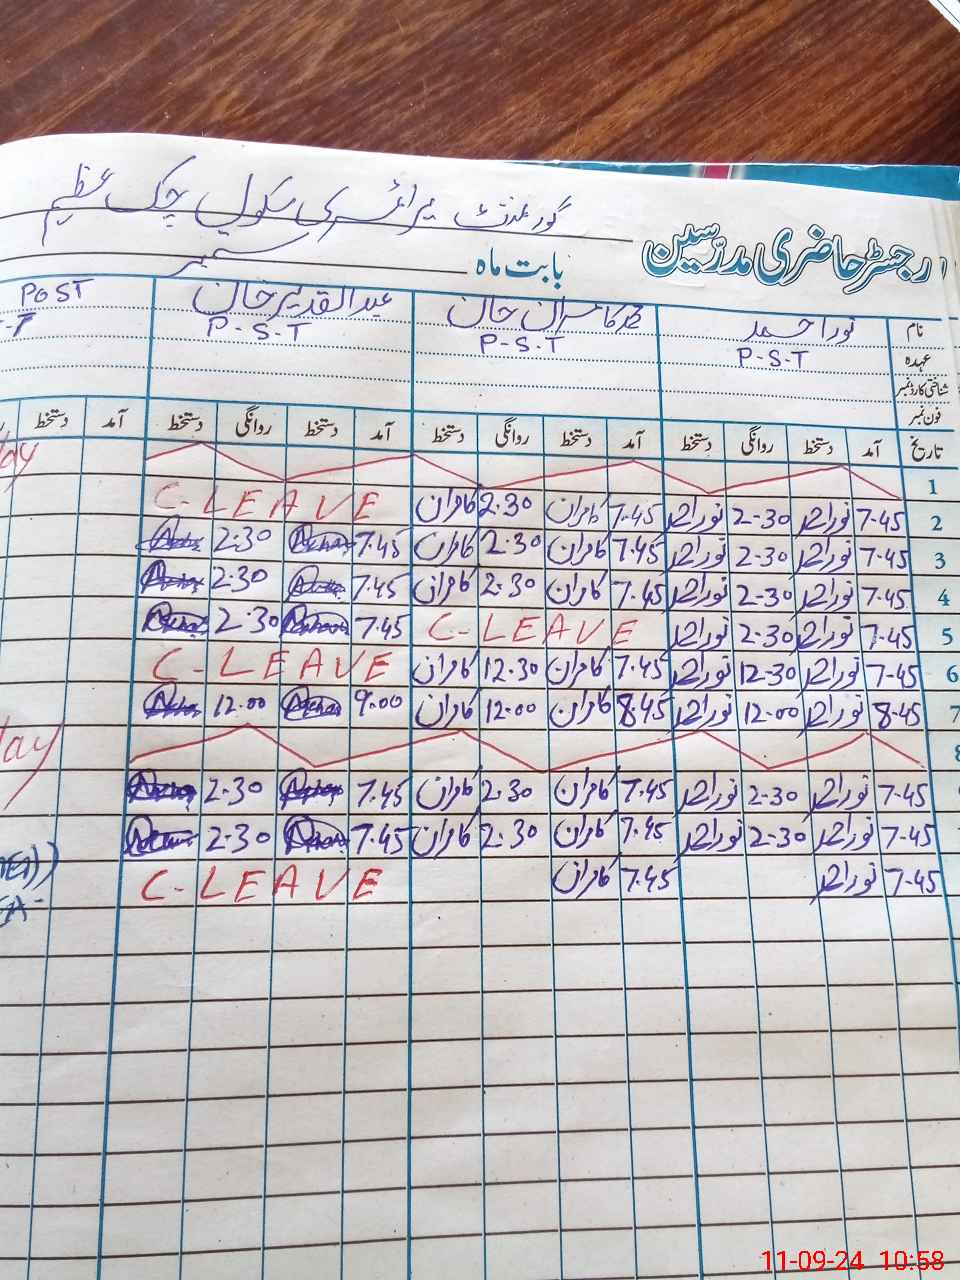 گورنمنٹ پرائمری سکول چک عظیم
رجسٹر حاضری مدرّسین
بابت ماہ ستمبر
نام نور احمد محمد کامران خان عبدالقدیر خان POST
عہدہ P-S-T P-S-T P-S-T
شناختی کارڈ نمبر
فون نمبر
تاریخ آمد دستخط روانگی دستخط آمد دستخط روانگی دستخط آمد دستخط روانگی دستخط آمد دستخط
1
2 7-45 نور احمد 2-30 نور احمد 7.45 کامران 2.30 کامران C-LEAVE
3 7-45 نور احمد 2-30 نور احمد 7.45 کامران 2.30 کامران 7.45 2.30
4 7-45 نور احمد 2-30 نور احمد 7.45 کامران 2.30 کامران 7.45 2.30
5 7-45 نور احمد 2-30 نور احمد C-LEAVE 7.45 2.30
6 7-45 نور احمد 12-30 نور احمد 7.45 کامران 12.30 کامران C-LEAVE
7 8-45 نور احمد 12-00 نور احمد 8.45 کامران 12.00 کامران 9.00 12.00
8
7-45 نور احمد 2-30 نور احمد 7.45 کامران 2.30 کامران 7.45 2.30
7-45 نور احمد 2-30 نور احمد 7.45 کامران 2.30 کامران 7.45 2.30
7-45 نور احمد 7.45 کامران C-LEAVE
11-09-24 10:58